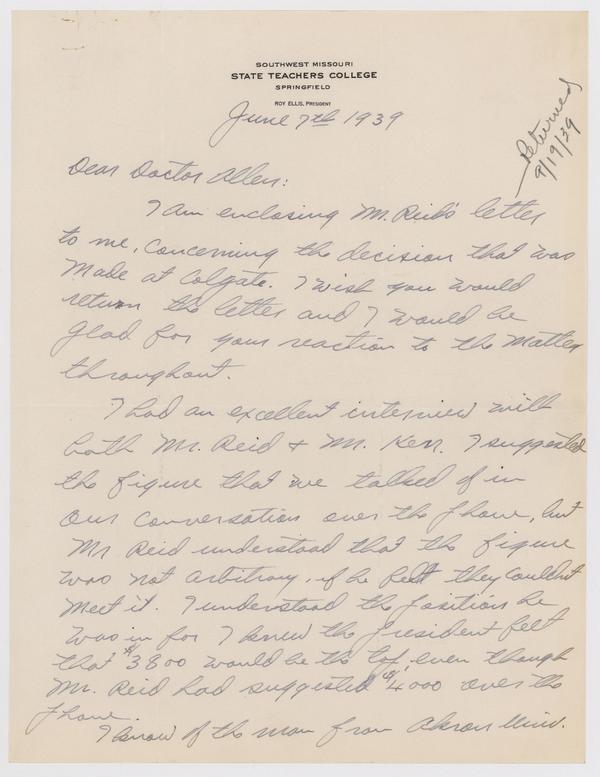 SOUTHWEST MISSOURI
STATE TEACHERS COLLEGE
SPRINGFIELD
ROY ELLIS, PRESIDENT
June 7th 1939
Returned
8/19/39
Dear Doctor Allen:
I am enclosing Mr. Reid's letter
to me, concerning the decision that was
made at Colgate. I wish you would
return the letter and I would be
glad for your reaction to the matter
throughout.
I had an excellent interview with
both Mr. Reid & Mr. Kerr. I suggested
the figure that we talked of in
our conversation over the phone, but
Mr Reid understood that the figure
was not arbitrary, if he felt they couldn't
meet it. I understood the position he
was in for I knew the President felt
that $3800 would be the top, even though
Mr. Reid had suggested $4000 over the
phone.
I know of the man from Akron Univ.